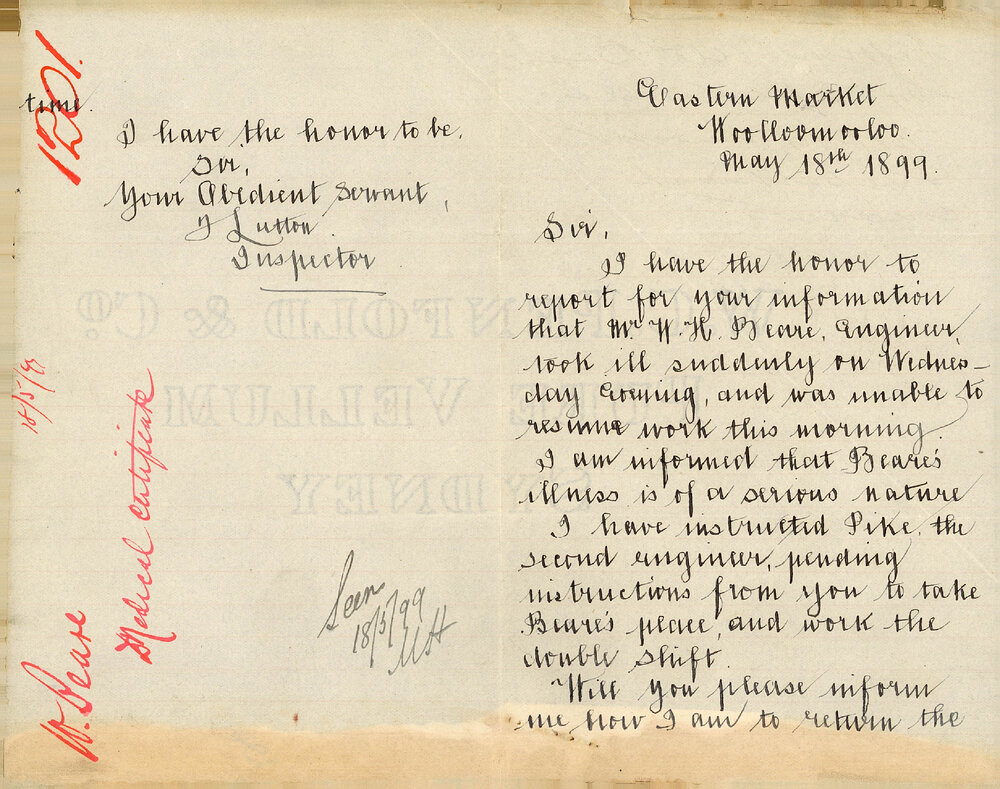 Eastern Market
Woolloomooloo.
May 18th 1899.
Sir,
I have the honor to
report for your information
that Mr. W. H. Beare, Engineer,
took ill suddenly on Wednes-
day Evening, and was unable to
resume work this morning.
I am informed that Beare's
illness is of a serious nature
I have instructed Pike, the
second engineer, pending
instructions from you to take
Beare's place, and work the
double shift.
Will you please inform
me how I am to return the
time.
I have the honor to be,
Sir,
Your Obedient Servant,
J Lutton
Inspector
Seen
18/5/99
1201.
18/5/99
Medical certificate
W. Beare
WIENFOLD & CO.
PURE VELLUM
SYDNEY